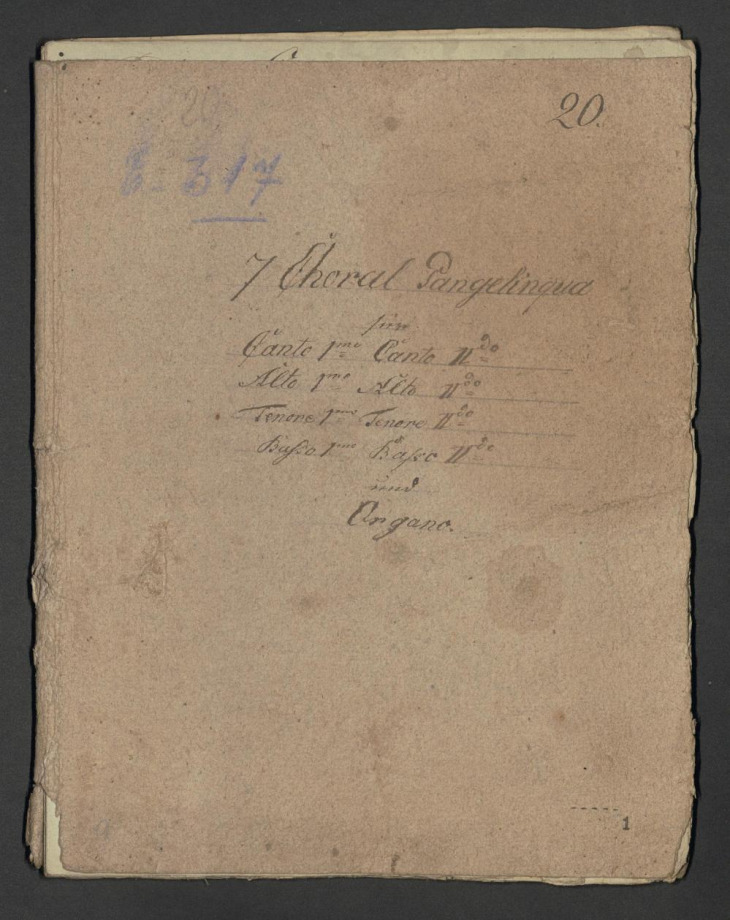 20.
20
E. 317
7 Choral Pangelingua
für
Canto 1mo Canto IIdo
Alto 1mo Alto IIdo
Tenore 1mo Tenore IIdo
Basso 1mo Basso IIdo
und
Organo.
1